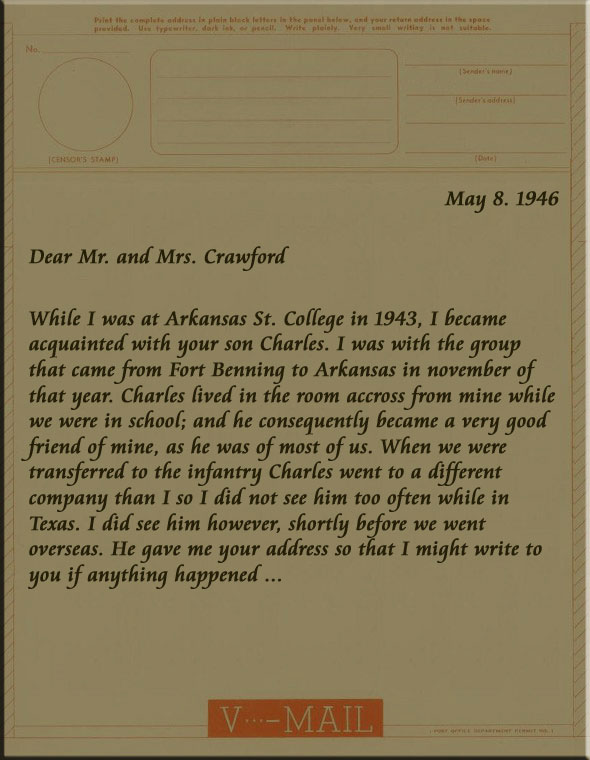 Print the complete address in plain block letters in the panel below, and your return address in the space
provided. Use typewriter, dark ink, or pencil. Write plainly. Very small writing is not suitable.
No.
(Sender's name)
(Sender's address)
(CENSOR'S STAMP)
(Date)
May 8. 1946
Dear Mr. and Mrs. Crawford
While I was at Arkansas St. College in 1943, I became
acquainted with your son Charles. I was with the group
that came from Fort Benning to Arkansas in november of
that year. Charles lived in the room accross from mine while
we were in school; and he consequently became a very good
friend of mine, as he was of most of us. When we were
transferred to the infantry Charles went to a different
company than I so I did not see him too often while in
Texas. I did see him however, shortly before we went
overseas. He gave me your address so that I might write to
you if anything happened ...
V···–MAIL
POST OFFICE DEPARTMENT PERMIT NO. 1